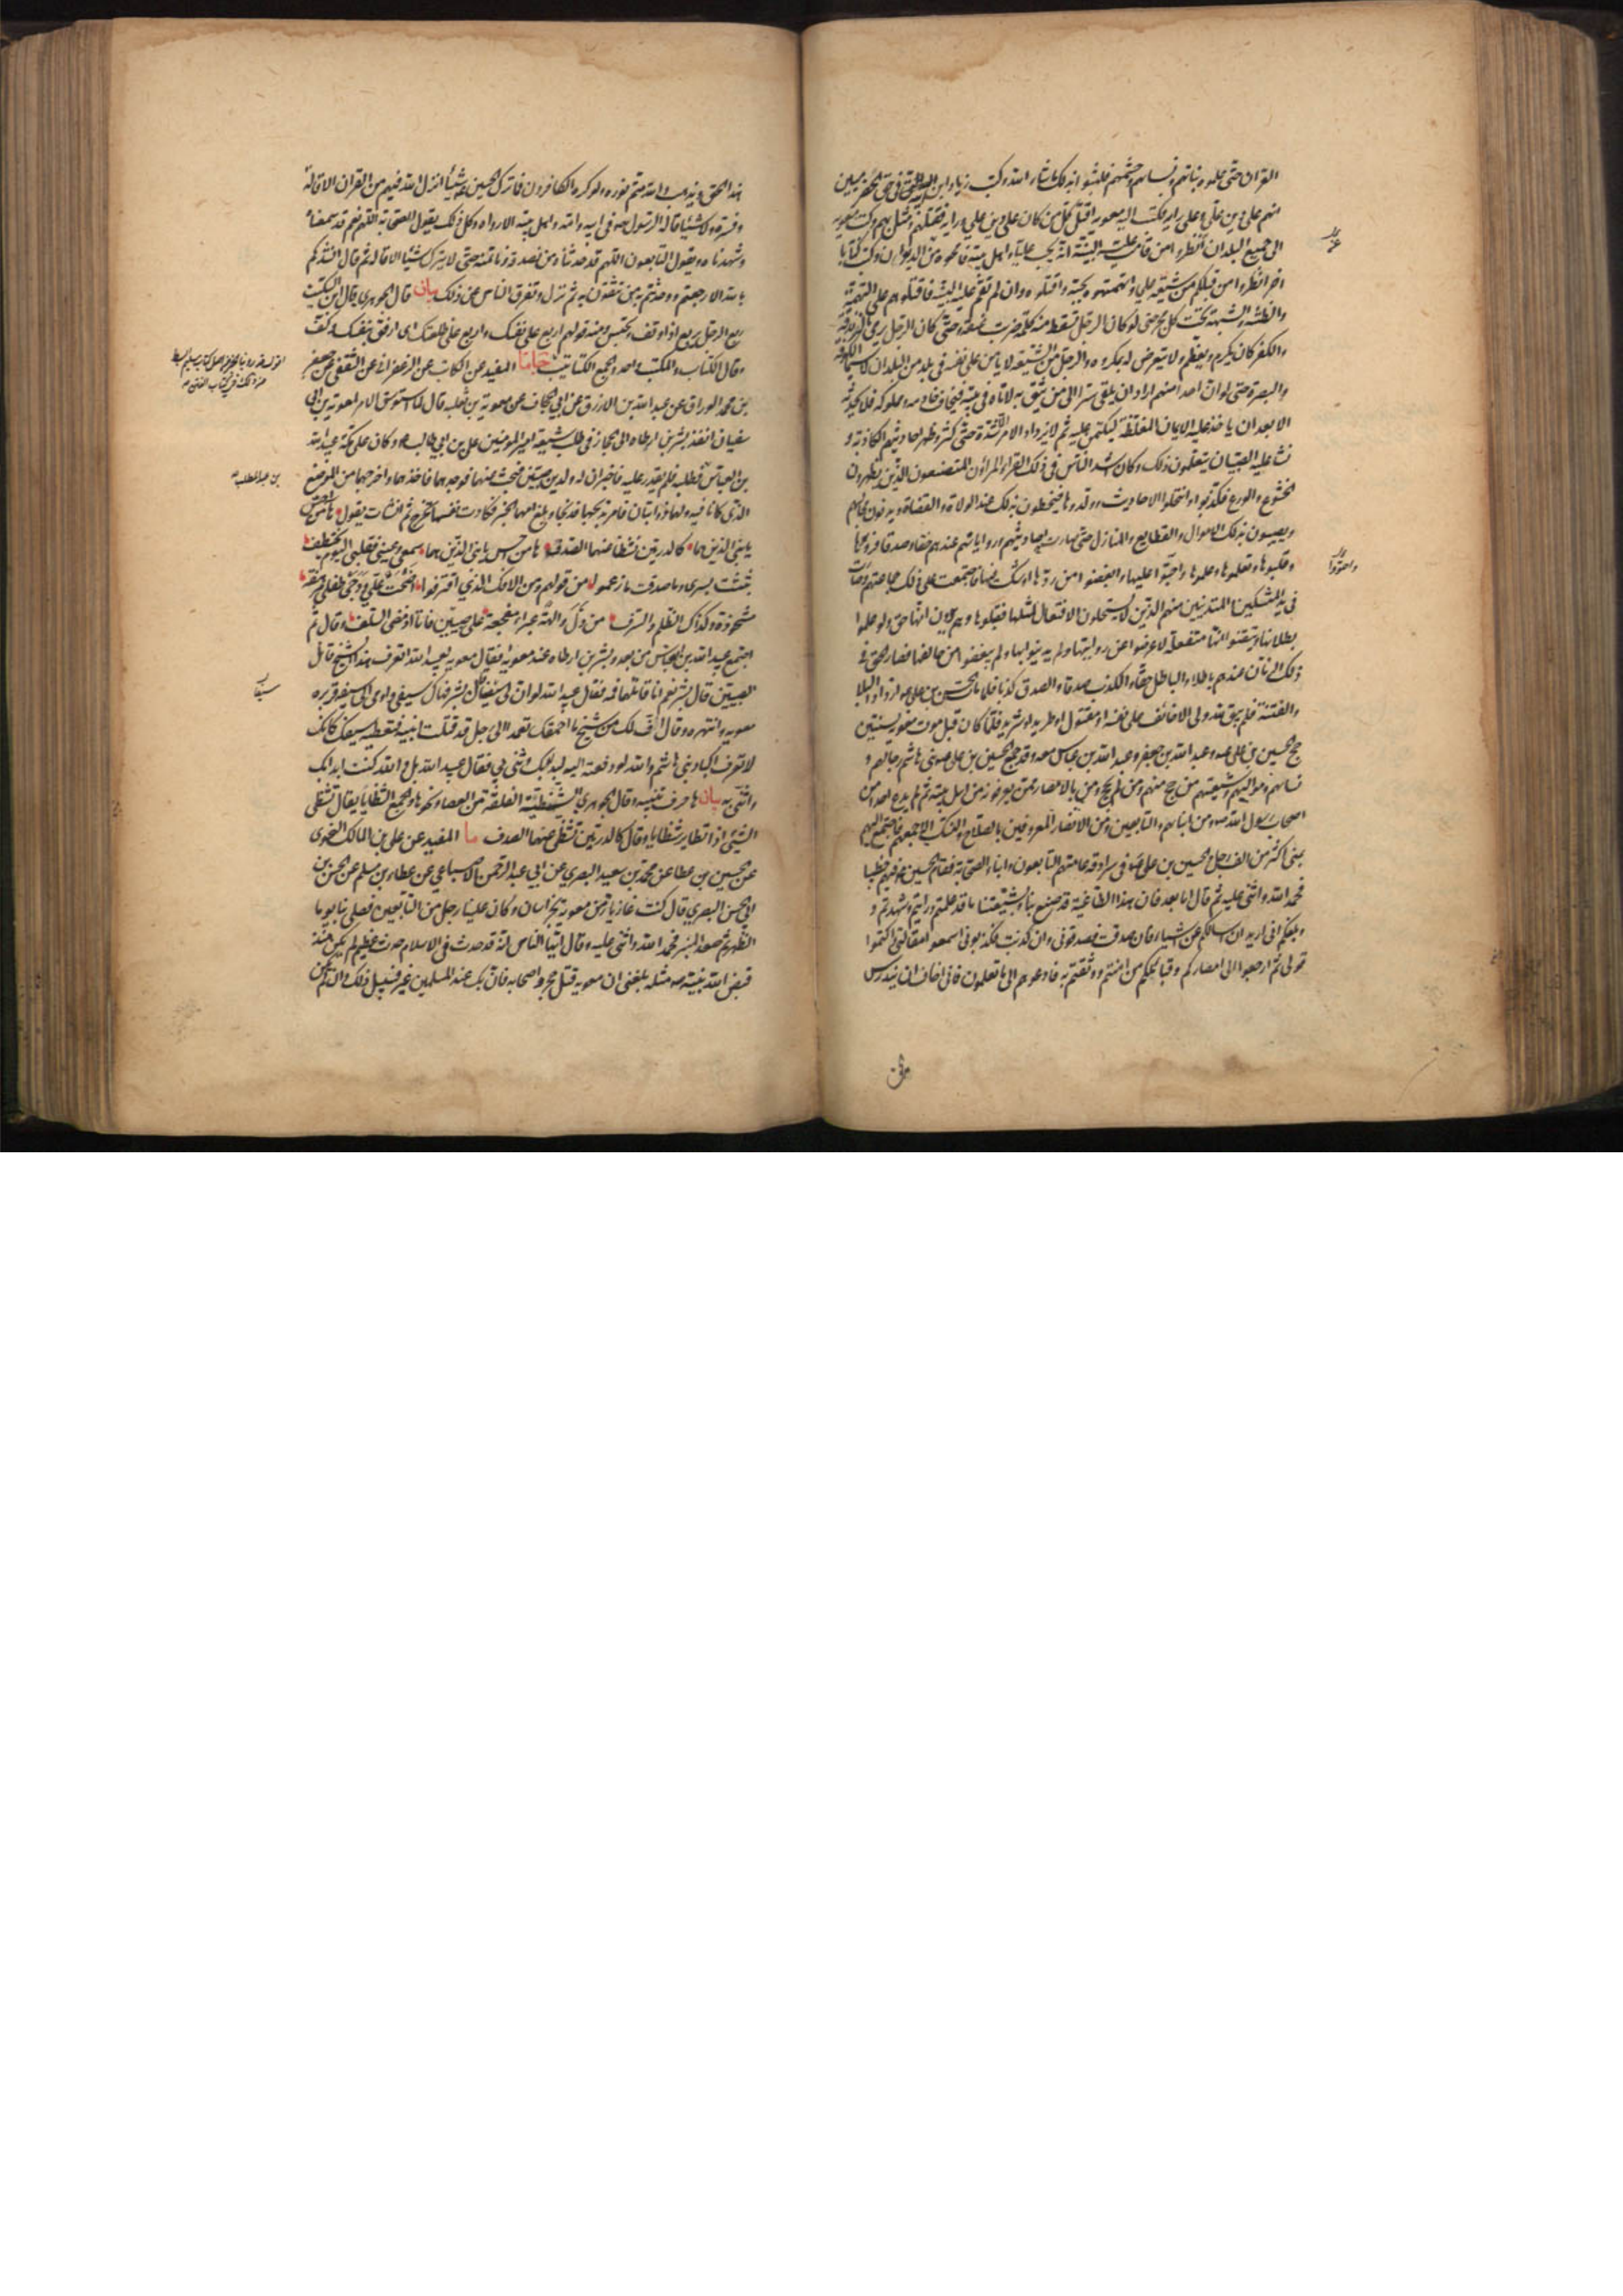 القران حتى علموه بناتهم ونساءهم وحشمهم فلبثوا بذلك ما شاء الله وكتب زياد ابن ابيه اليه في حق الحضرميين
انهم على دين علي وعلى رأيه فكتب اليه معويه اقتل كل من كان على دين علي ورأيه فقتلهم ومثل بهم وكتب معويه
الى جميع البلدان انظروا من قامت عليه البينة انه يحب عليا واهل بيته فامحوه من الديوان وكتب كتابا
اخر انظروا من قبلكم من شيعة علي واتهمتموه بحبه فاقتلوه وان لم تقم عليه البينة فاقتلوهم على التهمة
والظنة والشبهة تحت كل حجر حتى لو كان الرجل تسقط منه كلمة ضربت عنقه وحتى كان الرجل يرمى بالزندقة
والكفر كان يكرم ويعظم ولا يتعرض له بمكروه والرجل من الشيعة لا يأمن على نفسه في بلد من البلدان لا سيما الكوفة
والبصرة حتى لو ان احدا منهم اراد ان يلقي سرا الى من يثق به لاتاه في بيته فيخاف خادمه ومملوكه فلا يحدثه
الا بعد ان ياخذ عليه الايمان المغلظة ليكتمن عليه ثم لا يزداد الامر الا شدة حتى كثر وظهر احاديثهم الكاذبة و
نشأ عليه الصبيان يتعلمون ذلك وكان اشد الناس في ذلك القراء المراؤن المتصنعون الذين يظهرون
الخشوع والورع فكذبوا وانتحلوا الاحاديث وولدوها فيحظون بذلك عند الولاة والقضاة ويدنون مجالسهم
ويصيبون بذلك الاموال والقطايع والمنازل حتى صارت احاديثهم ورواياتهم عندهم حقا وصدقا فرووها
وقبلوها وتعلموها وعلموها واحبوا عليها وابغضوا من ردها او شك فيها فاجتمعت على ذلك جماعتهم وصارت
في يد المتنسكين والمتدينين منهم الذين لا يستحلون الافتعال لمثلها فقبلوها وهم يرون انها حق ولو علموا
بطلانها وتيقنوا انها مفتعلة لاعرضوا عن روايتها ولم يدينوا بها ولم يبغضوا من خالفها فصار الحق في
ذلك الزمان عندهم باطلا والباطل حقا والكذب صدقا والصدق كذبا فلما مات الحسن بن علي ازداد البلاء
والفتنة فلم يبق لله ولي الا خائف على نفسه او مقتول او طريد او شريد فلما كان قبل موت معويه بسنتين
حج الحسين بن علي وعبد الله بن جعفر وعبد الله بن عباس معه وقد جمع الحسين بن علي بني هاشم رجالهم و
نساءهم ومواليهم وشيعتهم من حج منهم ومن لم يحج ومن بالامصار ممن يعرفونه من اهل بيته ثم لم يدع احدا من
اصحاب رسول الله ومن ابنائهم والتابعين ومن الانصار المعروفين بالصلاح والنسك الا جمعهم فاجتمع اليهم
بمنى اكثر من الف رجل والحسين بن علي في سرادقه عامتهم التابعون وابناء الصحابة فقام الحسين فيهم خطيبا
فحمد الله واثنى عليه ثم قال اما بعد فان هذا الطاغية قد صنع بنا وبشيعتنا ما قد علمتم ورايتم وشهدتم و
وبلغكم اني اريد ان اسالكم عن اشياء فان صدقت فصدقوني وان كذبت فكذبوني اسمعوا مقالتي واكتموا
قولي ثم ارجعوا الى امصاركم وقبائلكم من امنتم ووثقتم به فادعوهم الى ما تعلمون فاني اخاف ان يندرس
هذا الحق ويذهب والله متم نوره ولو كره الكافرون فما ترك الحسين شيئا انزل الله فيهم من القران الا قاله
وفسره ولا شيئا قاله الرسول في ابيه وامه واهل بيته الا رواه وكل ذلك يقول الصحابة اللهم نعم قد سمعناه
وشهدناه ويقول التابعون اللهم قد حدثناه من نصدقه ونأتمنه حتى لا يترك شيئا الا قاله ثم قال انشدكم
بالله الا رجعتم وحدثتم به من تثقون به ثم نزل وتفرق الناس عن ذلك بيان قال الجوهري قال ابن السكيت
ربع الرجل يربع اذا وقف وتحبس ومنه قولهم اربع على نفسك واربع على ظلعك اي ارفق بنفسك وكف
وقال الكتاب والمكتب واحد والجمع الكتاتيب المفيد عن الكاتب عن الزعفراني عن الثقفي عن جعفر
بن محمد الوراق عن عبد الله بن الازرق عن ابي الجحاف عن معوية بن ثعلبه قال لما استوسق الامر لمعوية بن ابي
سفيان انفذ بشر بن ارطاه الى الحجاز في طلب شيعة امير المؤمنين علي بن ابي طالب وكان على مكة عبيد الله
بن العباس فطلبه فلم يقدر عليه فاخبر ان له ولدين صبيين فبحث عنهما فوجدهما فاخذهما واخرجهما من الموضع
الذي كانا فيه ولهما ذوابتان فامر بذبحهما فذبحا وبلغ امهما الخبر فكادت نفسها تخرج ثم انشأت يقول ها من احس
بابني الذين هما كالدرتين تشظا عنهما الصدف ها من احس بابني الذين هما سمعي وعيني فقلبي اليوم مختطف
نبئت بسرا وما صدقت ما زعموا من قولهم ومن الافك الذي اقترفوا انحت على ودجي طفلي مرهفة
مشحوذة وكذاك الظلم والسرف من دل والهة عبراء مفجعة على صبيين فاتا اذ مضى السلف قال ثم
اجتمع عبيد الله بن العباس من بعد وبشر بن ارطاه عند معويه فقال معويه لعبيد الله اتعرف هذا الشيخ قاتل
الصبيين قال بشر نعم انا قاتلهما فمه فقال عبيد الله لو ان لي سيفا قال بشر فهاك سيفي واومى الى سيفه فزبره
معويه وانتهره وقال اف لك من شيخ ما احمقك تعمد الى رجل قد قتلت ابنيه فتعطيه سيفك كانك
لا تعرف اكباد بني هاشم والله لو دفعته اليه لبدأ بك وثنى بي فقال عبيد الله بل والله كنت ابدأ بك
واثني به بيان ها حرف تنبيه وقال الجوهري الشظية الفلقة من العصا ونحوها والجمع الشظايا يقال تشظى
الشيئ اذا تطاير شظايا وقال كالدرتين تشظى عنهما الصدف ما المفيد عن علي بن المالك النحوي
عن الحسين بن عطا عن محمد بن سعيد البصري عن ابي عبد الرحمن الاصباعي عن عطاء بن مسلم عن الحسن بن
ابي الحسن البصري قال كنت غازيا زمن معويه بخراسان وكان علينا رجل من التابعين فصلى بنا يوما
الظهر ثم صعد المنبر فحمد الله واثنى عليه وقال ايها الناس انه قد حدث في الاسلام حدث عظيم لم يكن منذ
قبض الله نبيه مثله بلغني ان معويه قتل حجرا واصحابه فان يك عند المسلمين غير فسبيل ذلك وان لم يكن
بن عبد المطلب
سيفا